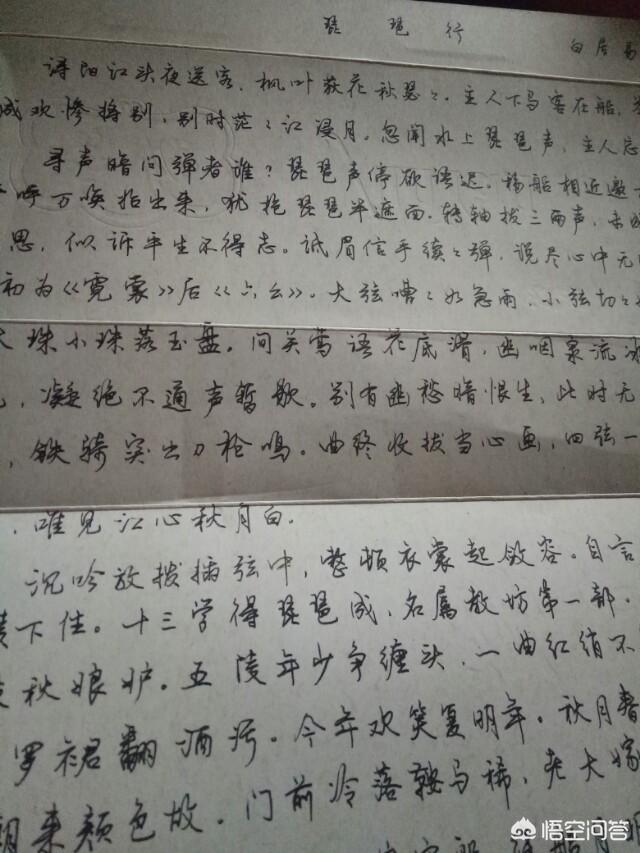 琵琶行
白居易
浔阳江头夜送客，枫叶荻花秋瑟々。主人下马客在船，
成欢惨将别，别时茫々江浸月。忽闻水上琵琶声，主人忘
寻声暗问弹者谁？琵琶声停欲语迟。移船相近邀
呼万唤始出来，犹抱琵琶半遮面。转轴拔三两声，未成
思，似诉平生不得志。低眉信手续々弹，说尽心中无
初为《霓裳》后《六幺》。大弦嘈々如急雨，小弦切々
大珠小珠落玉盘。间关莺语花底滑，幽咽泉流冰
，凝绝不通声暂歇。别有幽愁暗恨生，此时无
，铁骑突出刀枪鸣。曲终收拔当心画，四弦一
，唯见江心秋月白.
沉吟放拨插弦中，整顿衣裳起敛容。自言
下住。十三学得琵琶成，名属教坊第一部.
秋娘妒。五陵年少争缠头，一曲红绡不
罗裙翻酒污。今年欢笑复明年，秋月春
朝来颜色故，门前冷落鞍马稀，老大嫁
悟空问答